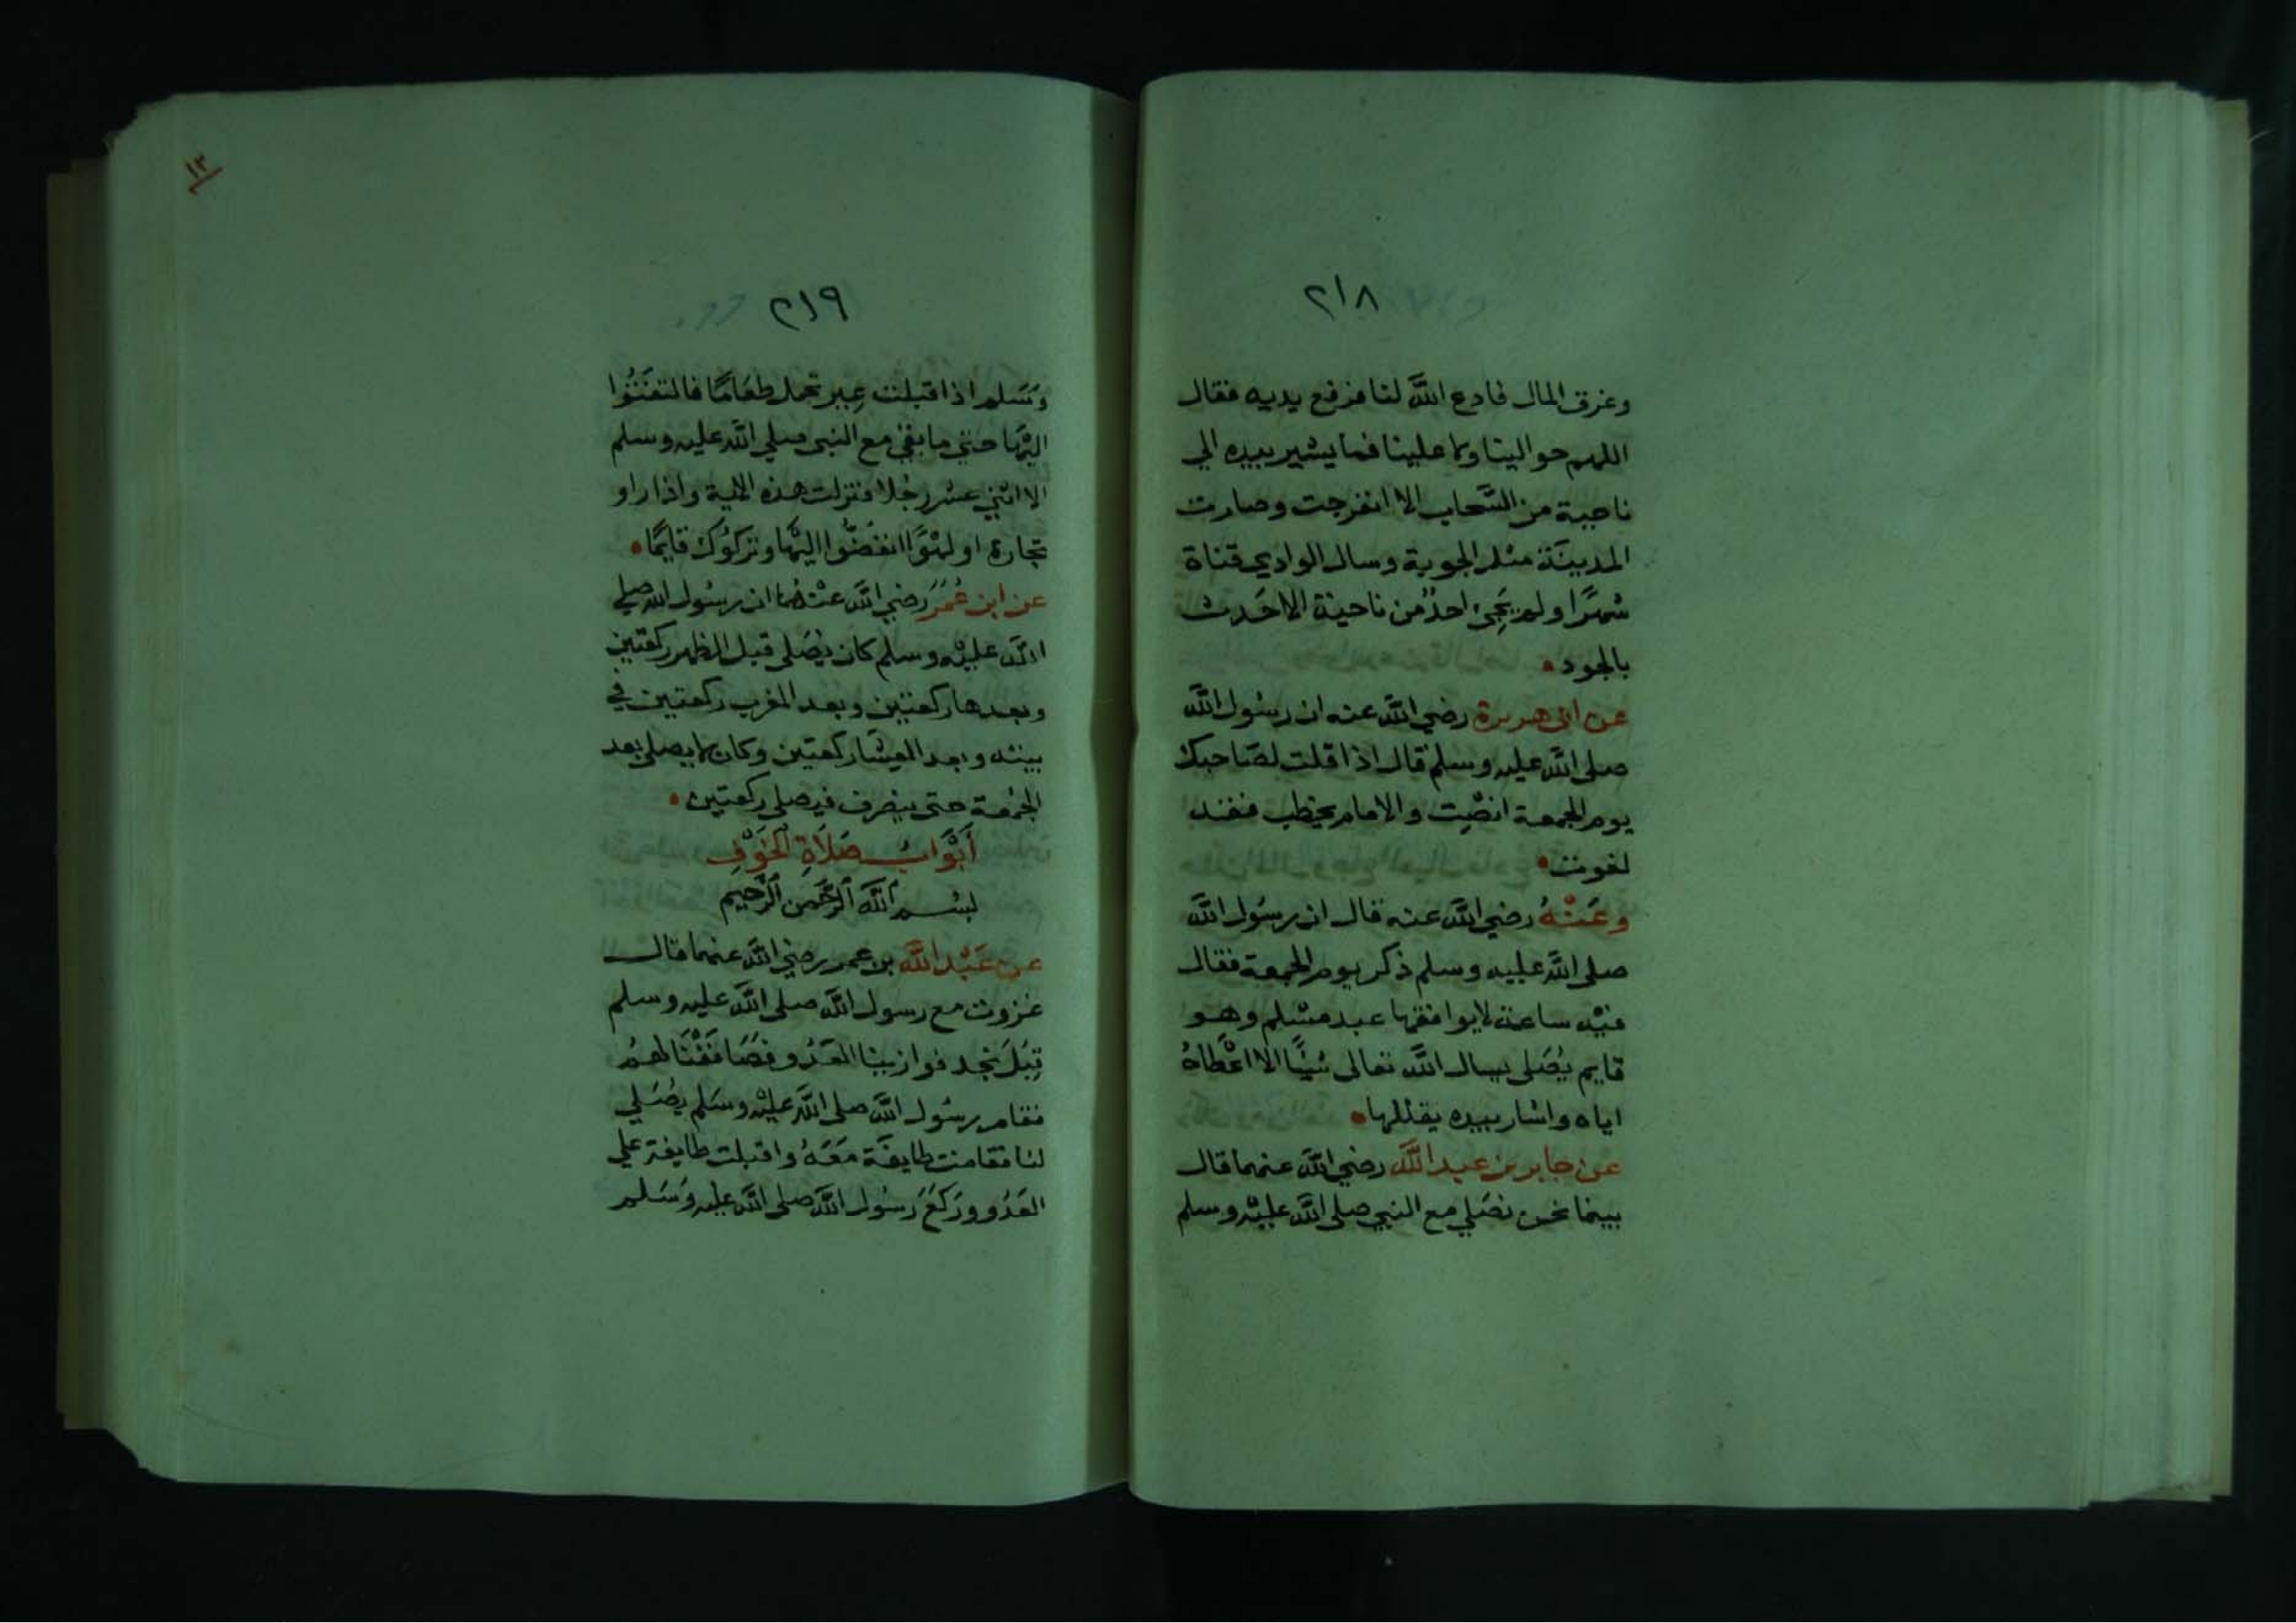 ٢١٨
وغرق المال فادع الله لنا فرفع يديه فقال
اللهم حوالينا ولا علينا فما يشير بيده الي
ناحية من السَّحاب الا انفرجت وصارت
المدينَة مثل الجوبة وسال الوادي قناة
شهرًا ولم يَجِئ احدٌ من ناحية الا حَدث
بالجود
عن ابى هريرة رضي الله عنه ان رسُول الله
صلى الله عليه وسلم قال اذا قلت لصَاحبك
يوم الجمعة انصِت والامام يخطب فقد
لغوت
وعَنْهُ رضي الله عنه قال ان رسُول الله
صلى الله عليه وسلم ذكر يوم الجمعة فقال
فيْه ساعة لا يوافقها عبد مسْلم وهو
قايم يُصَلى يسال الله تعالى شيًا الا اعْطاهُ
اياه واشار بيده يقللها
عن جابر بن عبد الله رضي الله عنهما قال
بينما نحن نصَلي مع النبي صلى الله عليْه وسلم
١٣
٢١٩
وَسَلم اذ اقبلت عِير تحمل طعَامًا فالتفَتُوا
اليْهَا حتي ما بقي مع النبى صلي الله عليه وسلم
الا اثني عشر رجُلا فنزلت هذه الاية واذا راو
تجارة او لهْوًا انفضُّوا اليْهَا وتركُوك قايمًا
عن ابن عُمَرَ رَضي الله عنْهُما ان رسُول الله صلي
الله عليْه وسلم كان يصَلى قبل الظهر ركعتين
وبعدها ركعتين وبعد المغرب ركعتين في
بيته وبعد العشَا ركعتين وكان لا يصلى بعد
الجمْعة حتى ينصرف فيصلي ركعتين
أَبْوَابُ صَلَاةِ الْخَوْفِ
بسْم الله الرَّحمن الرَّحيم
عن عَبْد الله بن عمر رضي الله عنهما قال
غزوت مع رسول الله صلى الله عليه وسلم
قِبَلَ نجد فوازينا العَدُو فصَافَفْنَا لهمُ
فقام رسُول الله صلى الله عليْه وسَلم يصَلي
لنا فقامت طايفَة مَعَهُ واقبلت طايفة علي
العَدُو ورَكعَ رَسُول الله صلى الله عليه وَسَلم